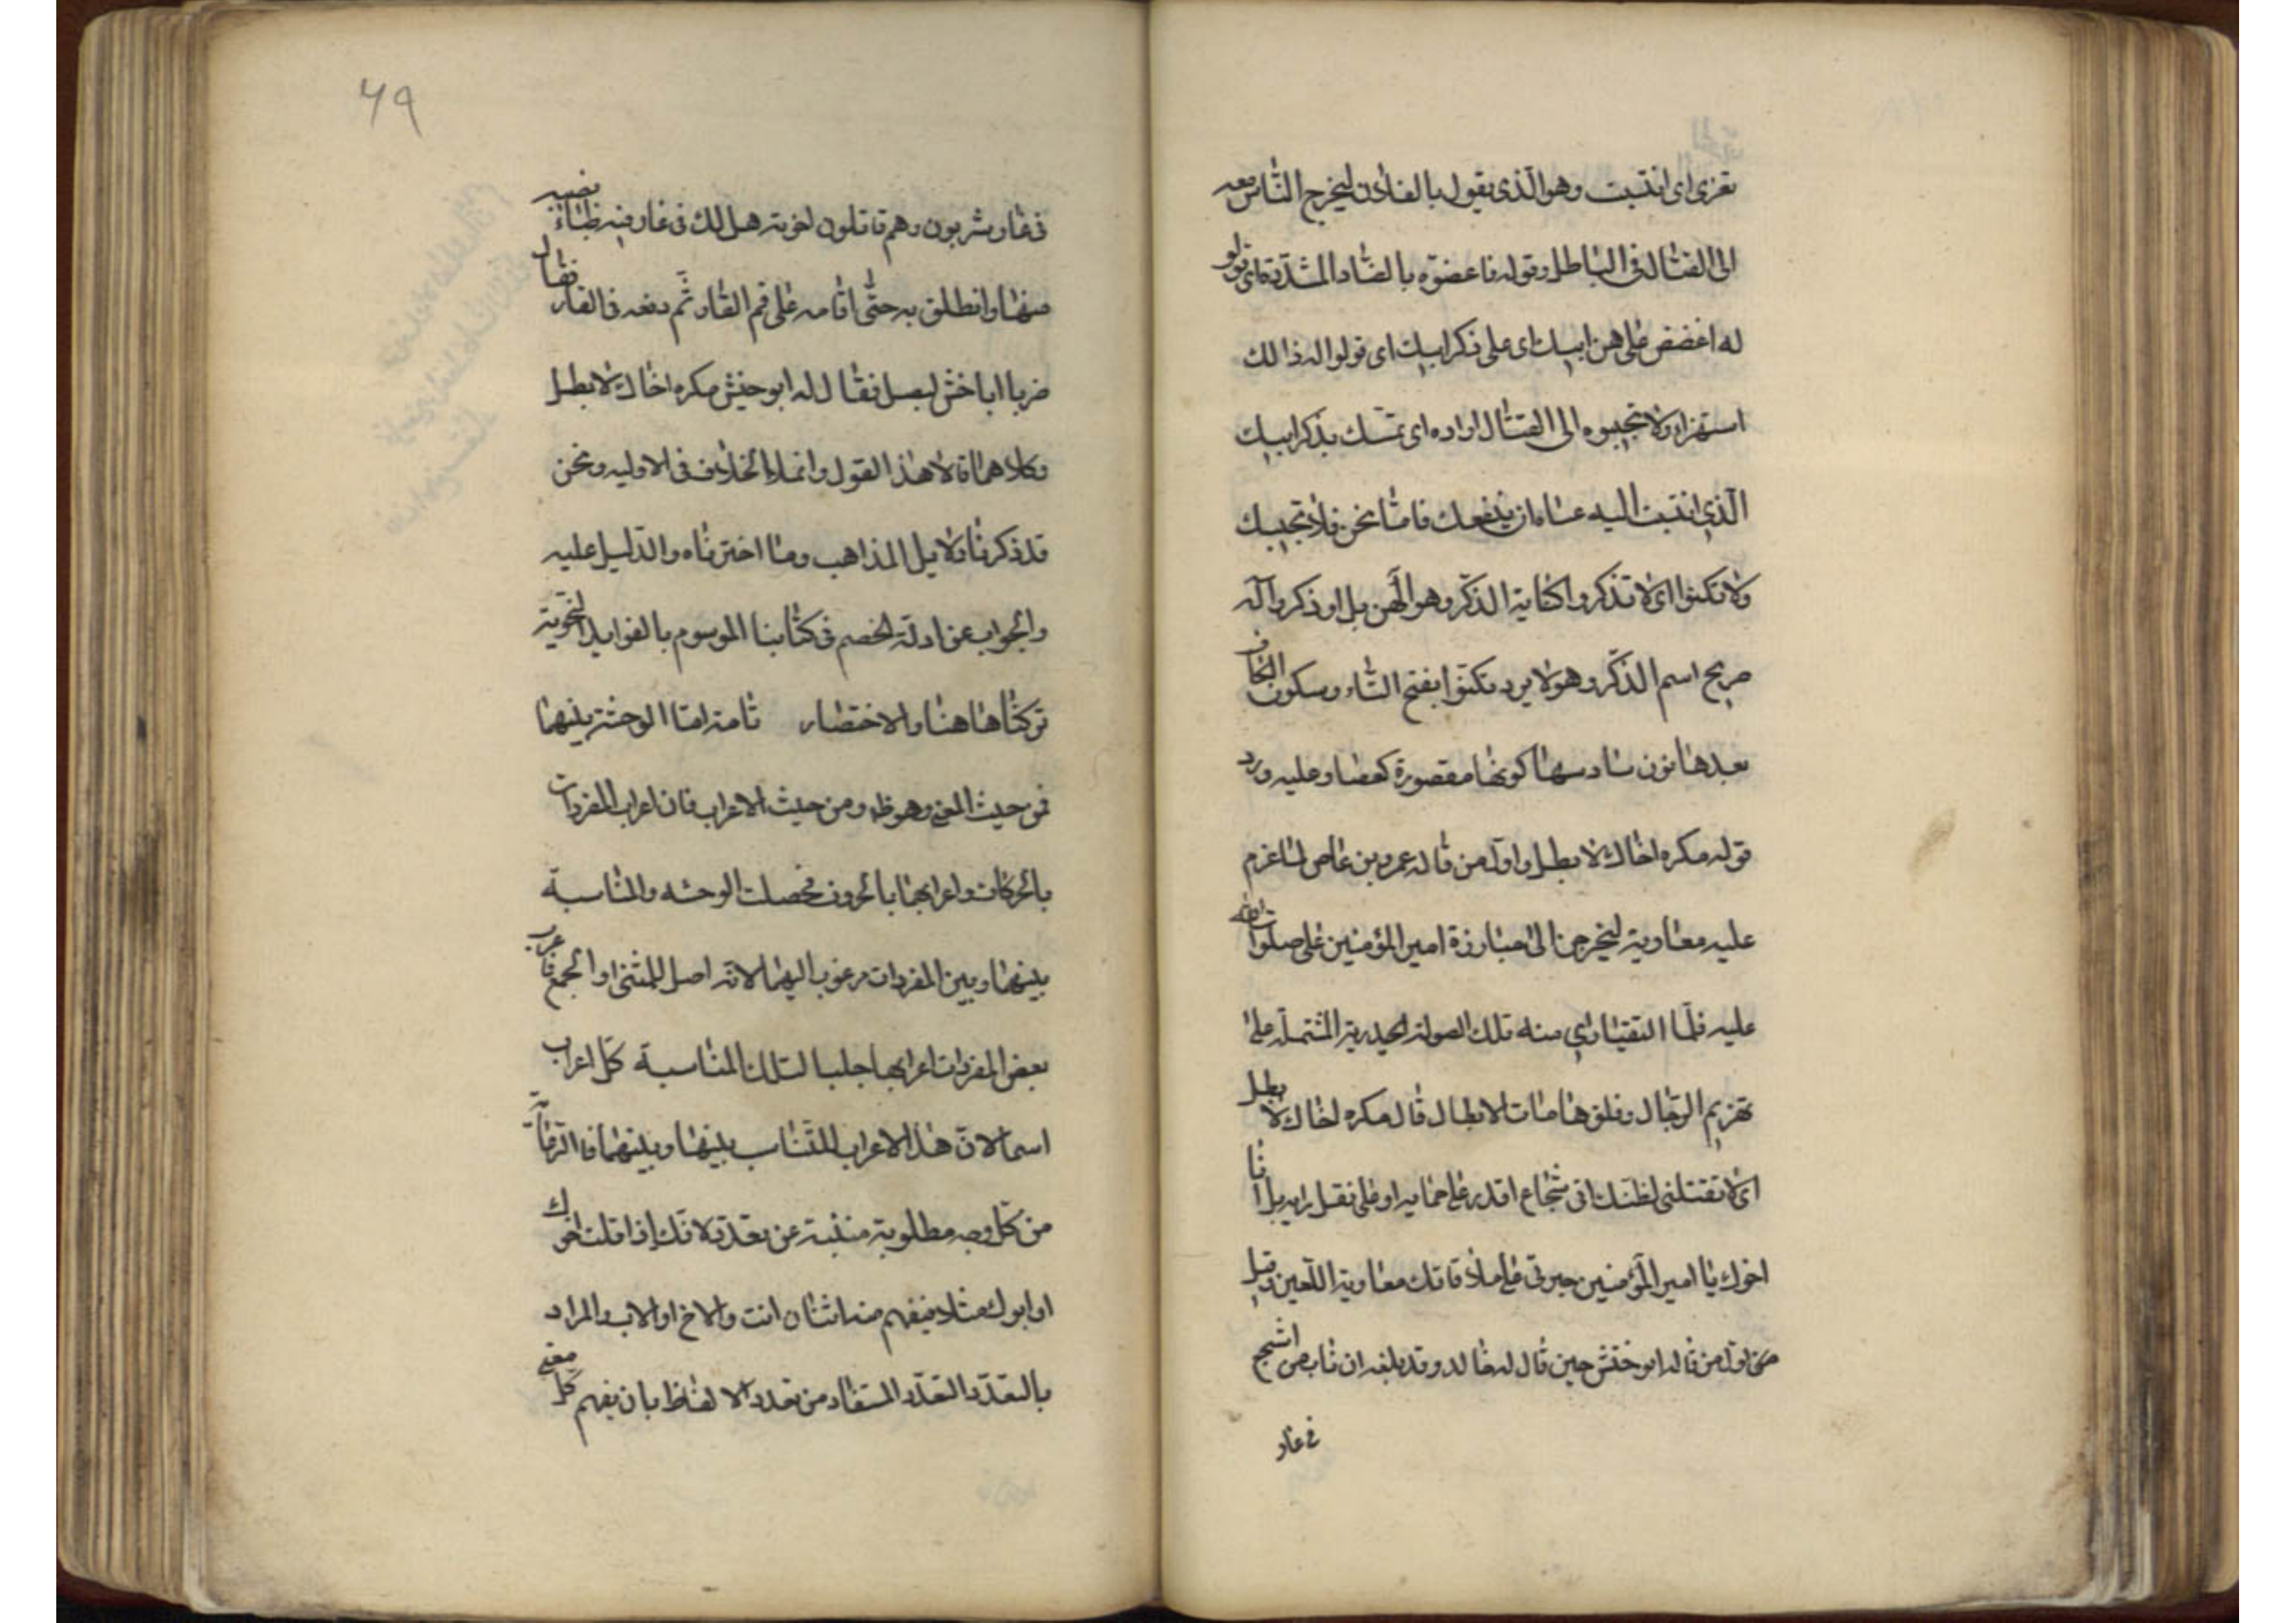 تعزى اى انتسبت وهو الّذى يقول يا لفلان ليخرج النّاس معه
الى القتال فى الباطل وقوله فاعضوّه بالضّاد المشدّدة اى قولو
له اغضض على هن ابيك اى على ذكر ابيك اى قولوا له ذالك
استهزاء ولا تجيبوه الى القتال اراده اى تمسّك بذكر ابيك
الّذى انتسبت اليه عساه ان ينفعك فامّا نحن فلا نجيبك
ولا تكنوا اى لا تذكروا كناية الذكّر وهو الهن بل اذكروا له
صريح اسم الذكّر وهو لا يرد تكنوا بفتح التّاء وسكون الكاف
بعدها نون سادسها كونها مقصورة كعصا وعليه ورد
قوله مكره اخاك لا بطل واوّل من قاله عمرو بن عاص لما عزم
عليه معاوية ليخرجن الى مبارزة امير المؤمنين على صلوات الله
عليه فلمّا التقيا راى منه تلك الصولة الحيدرية المشتملة على
تهزيم الرجال وفلق هامات الابطال قال مكره اخاك لا بطل
اى لا تقتلنى لظنك انى شجاع اقدر على حمايه او على نقل رايه بل انا
اخوك يا امير المؤمنين جبرنى على ملاقاتك معاوية اللّعين وقيل
من اوّل من قاله ابو حنش حين قال له خاله وقد بلغه ان ناسا من اشجع
فى غار
فى غار يشربون وهم قاتلون لخوته هل لك فى غار فيه ظباء نصيبه
منها وانطلق به حتّى اقامه على فم الغار ثمّ دفعه فى الغار فقال
ضربا ابا حنش لبصل فقال له ابو حنش مكره اخاك لا بطل
وكلاهما قالا هذا القول وانما الخلاف فى الاوليه ونحن
قد ذكرنا دلايل المذاهب وما اخترناه والدّليل عليه
والجواب عن ادلّة الخصم فى كتابنا الموسوم بالفوايد النحوية
تركناها هنا والاختصار ثامنه امّا الوحشة بينهما
فمن حيث المعنى وهو ظ ومن حيث الاعراب فان اعراب المفردات
بالحركات واعرابهما بالحروف فحصلت الوحشه والمناسبة
بينهما وبين المفردات مرغوب اليها لانّه اصل للمثنى او الجمع فاعرب
بعض المفردات اعرابها جلبا لتلك المناسبة كلّ اعراب
اسما لان هذا الاعراب للتناسب بينها وبينهما فالرعاية
من كلّ وجه مطلوبة منبئة عن تعدّد لانّك اذا قلت اخوك
او ابوك مثلا فيفهم منه اثنان انت والاخ او الاب والمراد
بالتعدّد التعدّد المستفاد من تعدد الالفاظ بان يفهم كلّ معنى